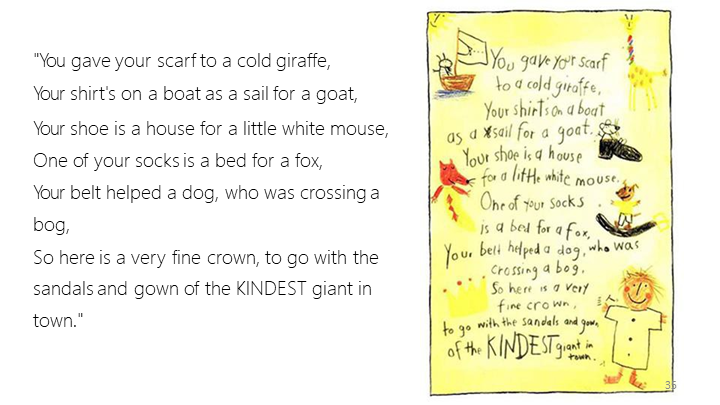 "You gave your scarf to a cold giraffe,
Your shirt's on a boat as a sail for a goat,
Your shoe is a house for a little white mouse,
One of your socks is a bed for a fox,
Your belt helped a dog, who was crossing a
bog,
So here is a very fine crown, to go with the
sandals and gown of the KINDEST giant in
town."
You gave your scarf
to a cold giraffe,
Your shirts on a boat
as a sail for a goat.
Your shoe is a house
for a little white mouse.
One of your socks
is a bed for a fox,
Your belt helped a dog, who was
crossing a bog.
So here is a very
fine crown,
to go with the sandals and gown
of the KINDEST giant in
town.
35